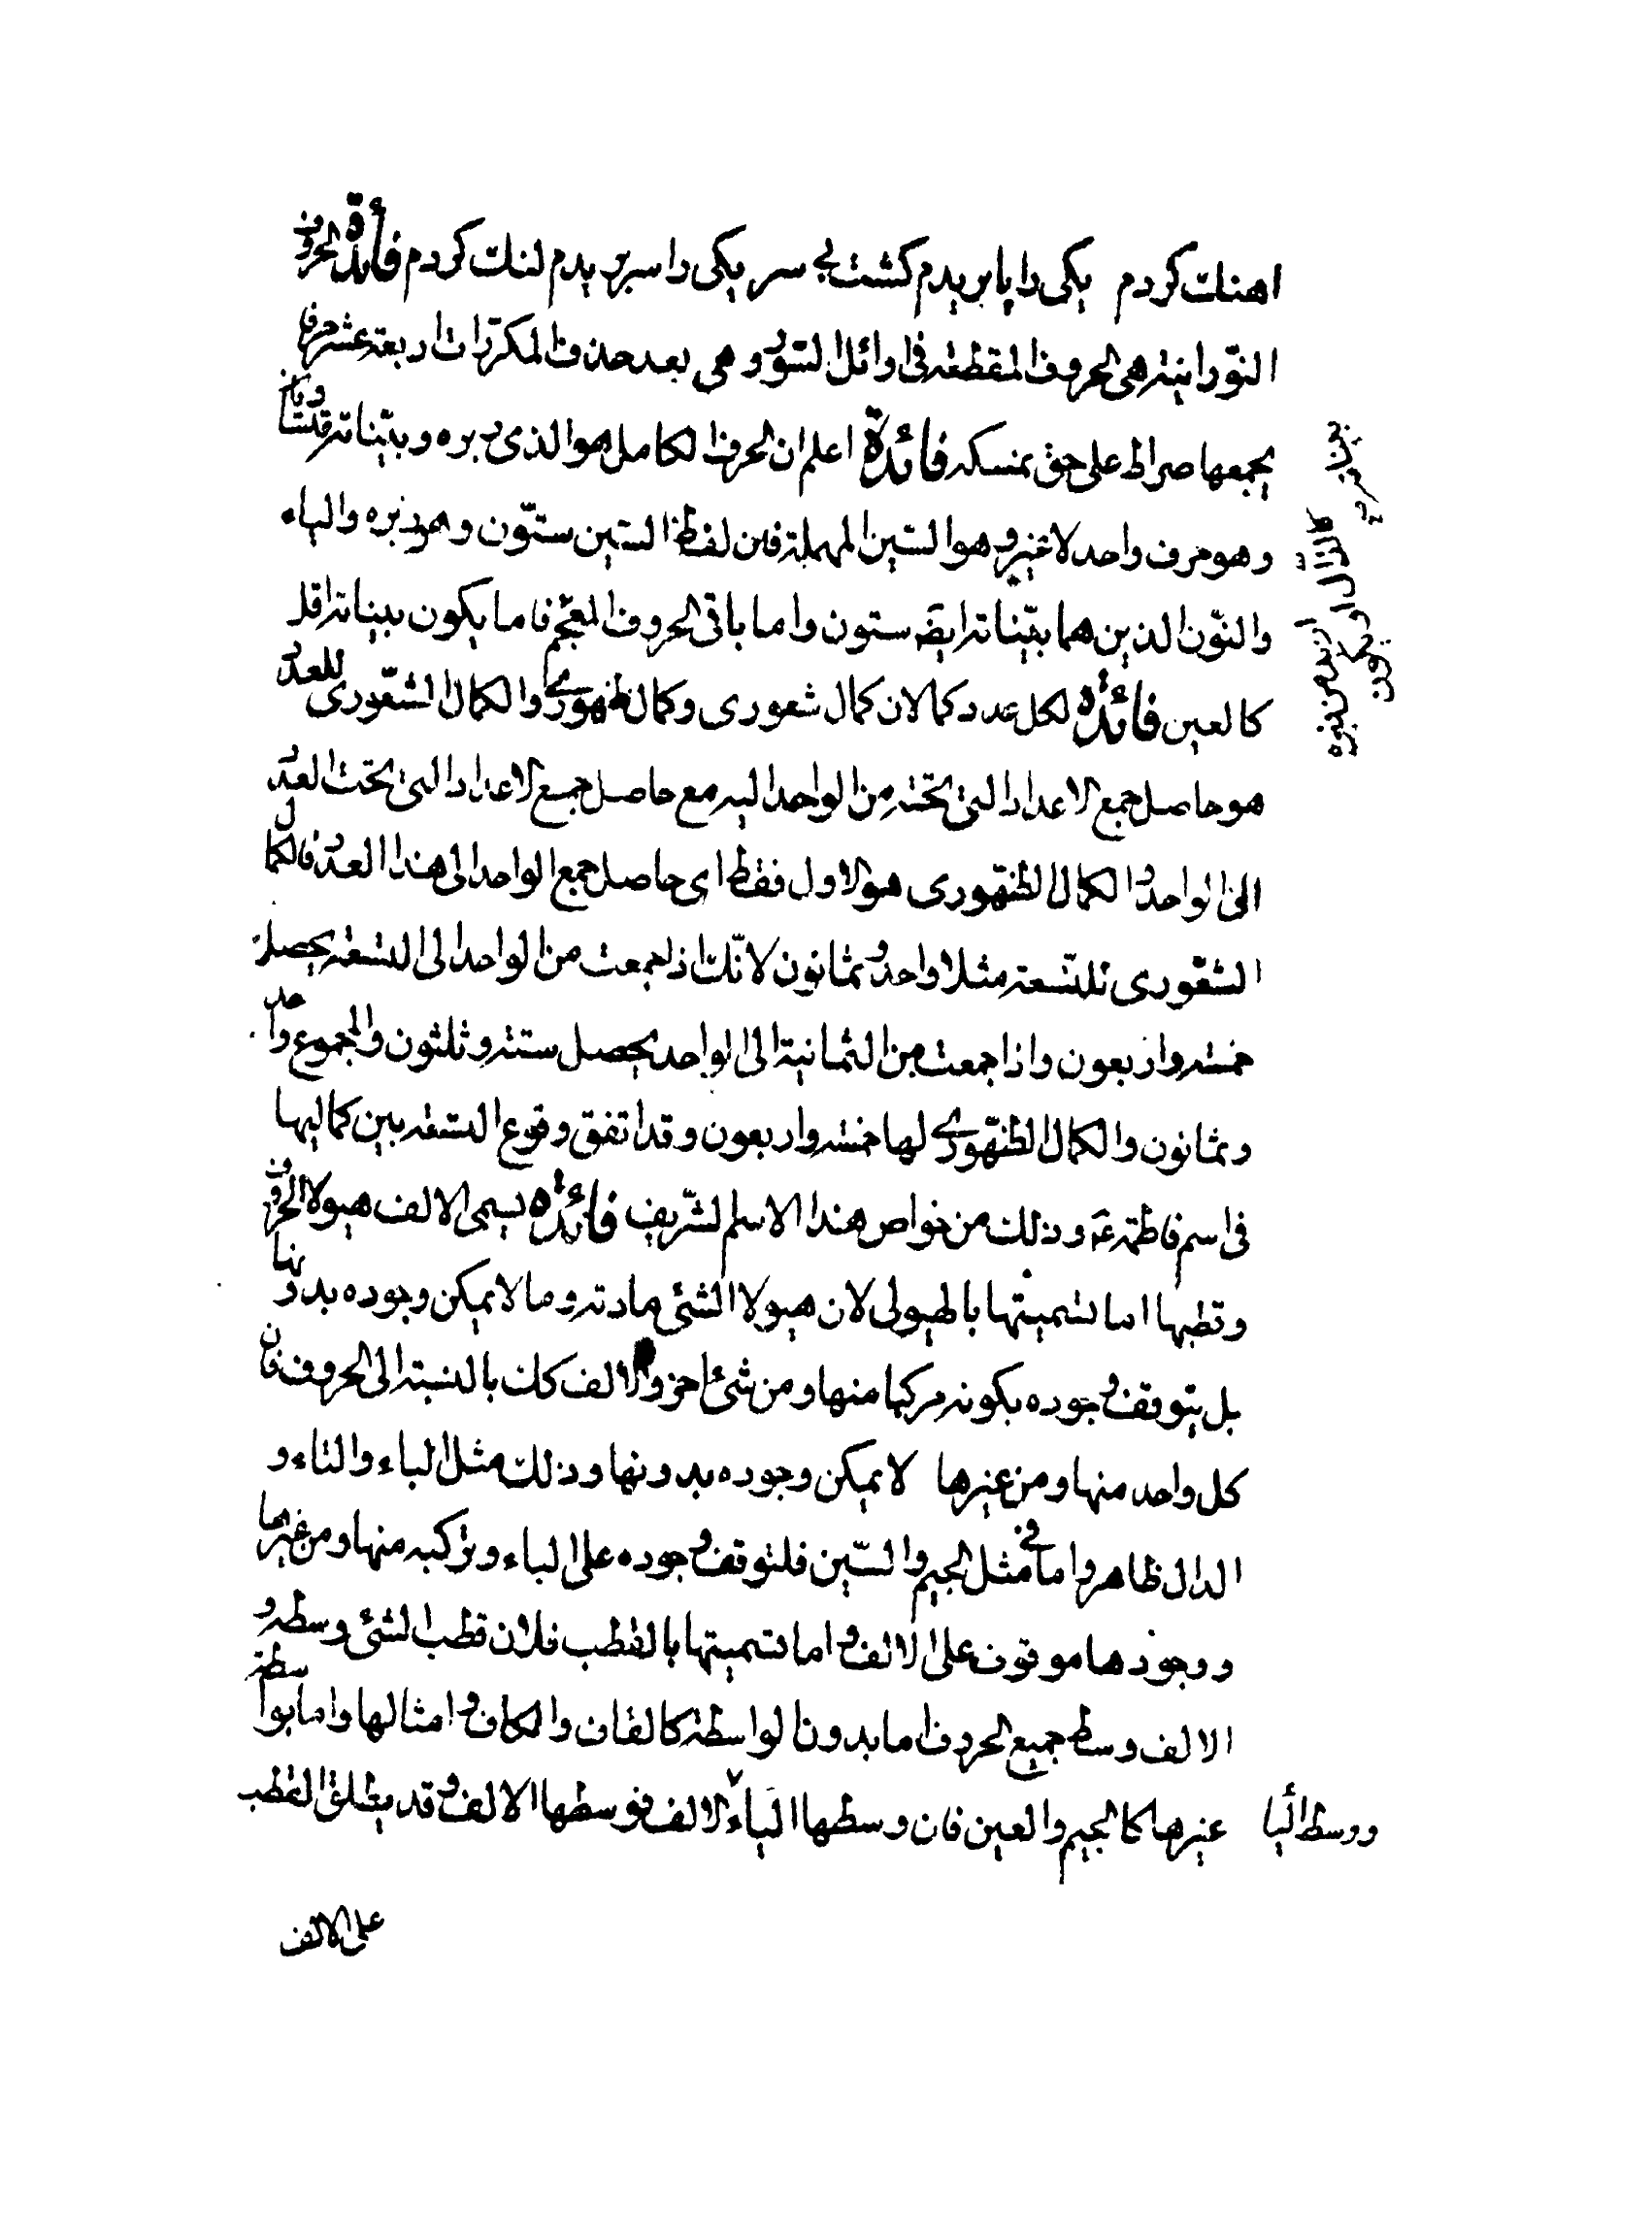 اهنك كردم يكى را پا بريدم كشت بى سر يكى را سر بريدم لنك كردم فائدة الحروف
النّورانيّة هى الحروف المقطعة فى اوائل السّور وهى بعد حذف المكرّرات اربعة عشر حرفا
يجمعها صراط على حق نمسكه فائدة اعلم ان الحرف الكامل هو الذى زبره وبيّناته متساويان
وهو حرف واحد لا غير وهو السّين المهملة فان لفظ السّين ستّون وهو زبره والياء
والنّون الذين هما بيّناته ايضَ ستون واما باقى الحروف المعجم فاما يكون بيناته اقل
كالعين فائدة لكل عدد كمالان كمال شعورى وكمال ظهورى والكمال الشّعورى للعدد
هو حاصل جمع الاعداد التى تحته من الواحد اليه مع حاصل جمع الاعداد التى تحت العدد
الى الواحد والكمال الظهورى هو الاول فقط اى حاصل جمع الواحد الى هذا العدد فالكمال
الشعورى للتسعة مثلا واحد وثمانون لانّك اذا جمعت من الواحد الى التسعة يحصل
خمسة واربعون واذا جمعت من الثمانية الى الواحد يحصل ستة وثلثون والمجموع واحد
وثمانون والكمال الظهورى لها خمسة واربعون وقد اتفق وقوع التسعة بين كماليها
فى اسم فاطمة عَ وذلك من خواص هذا الاسم الشّريف فائدة يسمى الالف هيولا الحروف
وقطبها اما تسميتها بالهيولى لان هيولا الشئ مادته وما لا يمكن وجوده بدونها
بل يتوقف وجوده بكونه مركبا منها ومن شئ اخر والالف كك بالنسبة الى الحروف فان
كل واحد منها ومن غيرها لا يمكن وجوده بدونها وذلك مثل الباء والتاء و
الدال ظاهر واما فى مثل الجيم والسّين فلتوقف وجوده على الياء وتركبه منها ومن غيرها
ووجودها موقوف على الالف واما تسميتها بالقطب فلان قطب الشئ وسطه و
الالف وسط جميع الحروف اما بدون الواسطة كالقاف والكاف وامثالها واما بواسطة
غيرها كالجيم والعين فان وسطها الياء الالف فوسطها الالف وقد يطلق القطب
على الالف
من زبره
كالدّال او يكون
ازيد من زبره
ووسط الياء